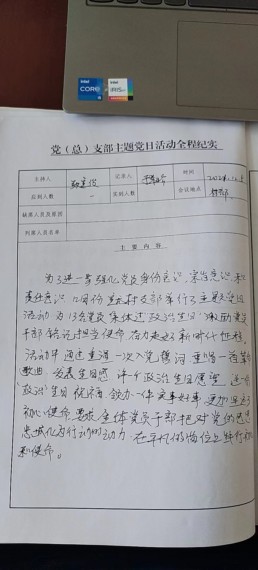 intel
CORE
i5
intel
IRIS xe
党（总）支部主题党日活动全程纪实
主持人 记录人 时间 2022年
应到人数 实到人数 会议地点 村部
缺席人员及原因
列席人员名单
主 要 内 容
为了进一步强化党员身份意识、宗旨意识和
责任意识，月份 村支部举行了主题党日
活动，为13名党员集体过“政治生日”，激励党员
干部铭记担当使命，奋力走好新时代征程。
活动中通过重温一次入党誓词、重唱一首革命
歌曲、发表生日感、许一个政治生日愿望、送一份
“政治”生日祝福、领办一件实事好事，更加坚定了
初心使命。要求全体党员干部把对党的
忠诚化为行动的动力，在平凡的岗位上践行初
和使命。